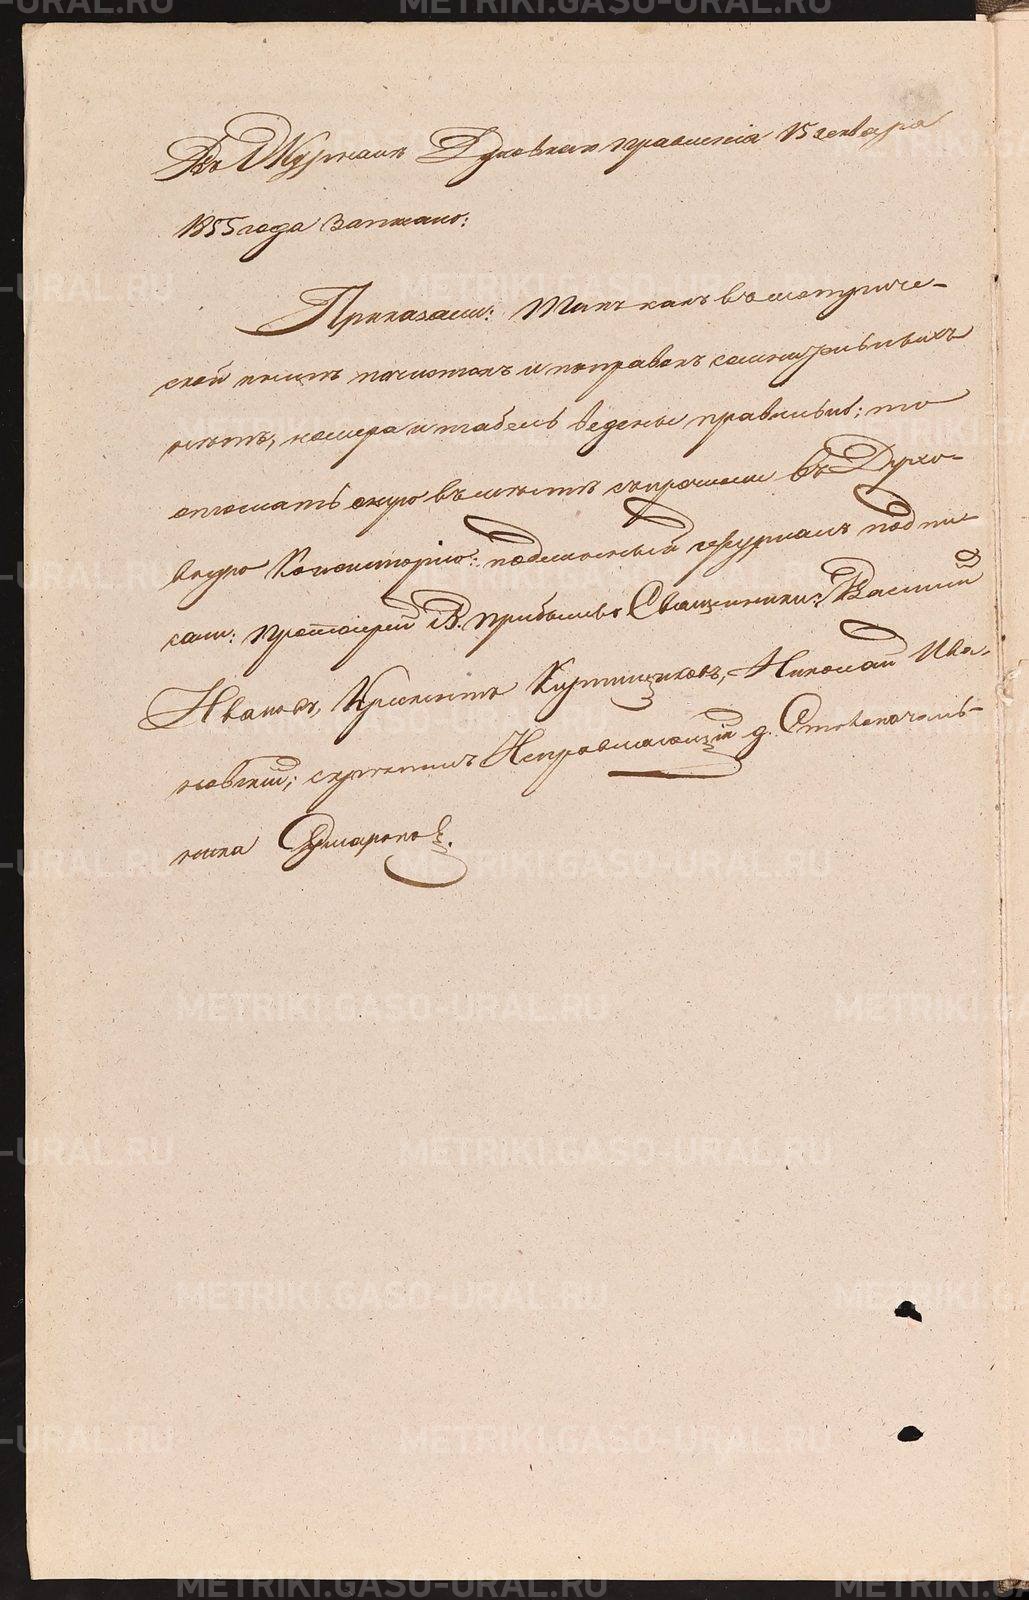 Въ Журналѣ Духовнаго правленія 15 генваря
1855 года записано:
Приказали: Такъ какъ въ метриче-
ской книгѣ почистокъ и поправокъ сомнительныхъ
нѣтъ, номера и табель ведены правильно; то
отослать оную вмѣстѣ съ прочими въ Духо-
вную Консисторію: подлинный журналъ подпи-
сали: протоіерей В. Прибылевъ Священники: Василій
Ивановъ, Климентъ Кирпищиковъ, Николай Ива-
новскій; скрѣпилъ Исправляющій д. Столоначаль-
ника
METRIKI.GASO-URAL.RU